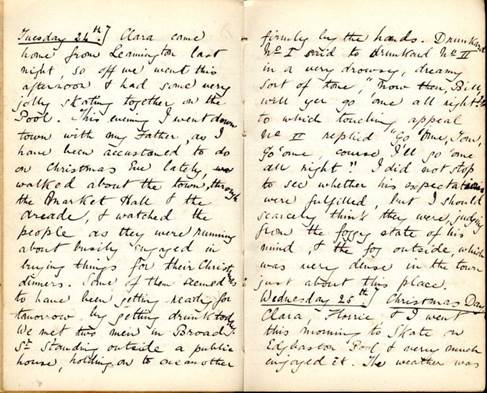 Tuesday 24th.] Clara came
home from Leamington last
night, so off we went this
afternoon & had some very
jolly skating together on the
Pool. This evening I went down
town with my Father, as I
have been accustomed to do
on Christmas Eve lately, we
walked about the town, through
the Market Hall & the
Arcade, & watched the
people as they were running
about busily engaged in
buying things for their Christmas
dinners. Some of them seemed
to have been getting ready for
tomorrow by getting drunk today
We met two men in Broad
St standing outside a public
house, holding on to one another
firmly by the hands. Drunkard
No I said to drunkard No II
in a very drowsy, dreamy
sort of tone, "Now then, Bill,
will yer go 'ome all right?"
to which touching appeal
No II replied "Go 'ome, Tom,
Go 'ome, course I'll go 'ome
all night!" I did not stop
to see whether his expectations
were fulfilled, but I should
scarcely think they were, judging
from the foggy state of his
mind & the fog outside, which
was very dense in the town
just about this place.
Wednesday 25th] Christmas Day
Clara, Florrie & I went
this morning to skate on
Edgbaston Pool & very much
enjoyed it. The weather was